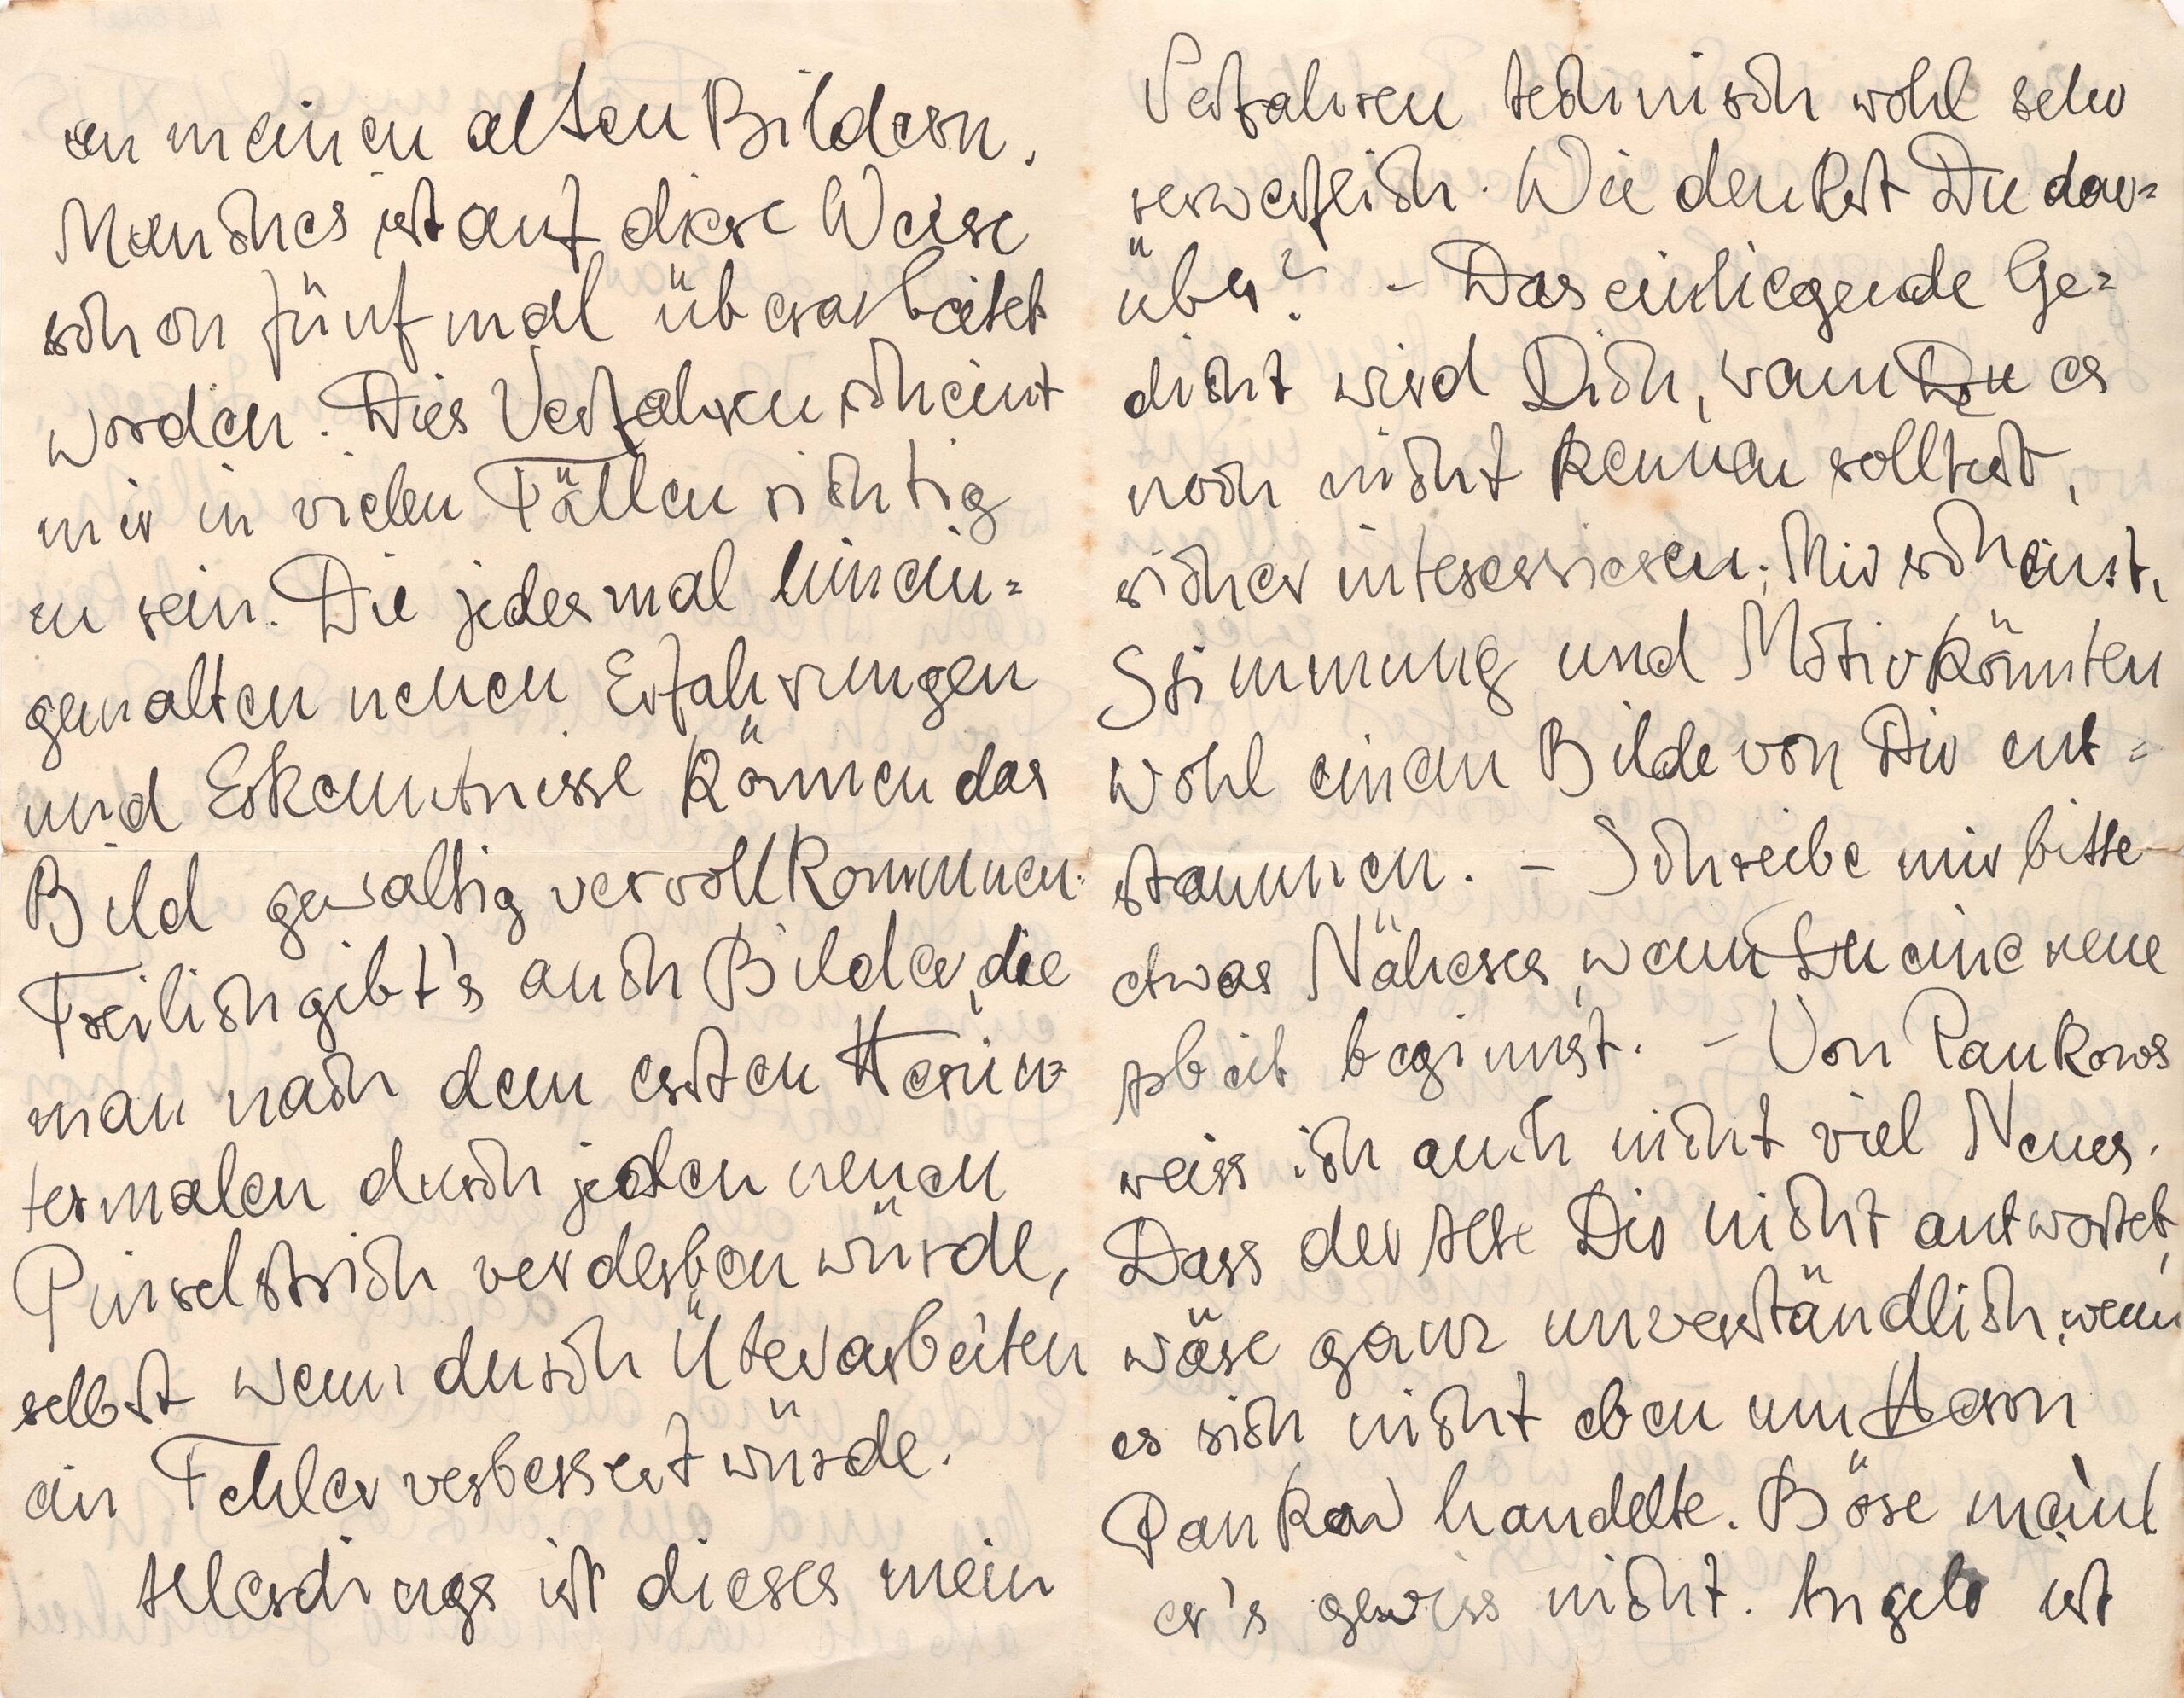 an meinen alten Bildern.
Manches ist auf diese Weise
schon fünfmal überarbeitet
worden. Dies Verfahren scheint
mir in vielen Fällen richtig
zu sein. Die jedesmal hinein=
gemalten neuen Erfahrungen
und Erkenntnisse können das
Bild gewaltig vervollkommnen.
Freilich gibt's auch Bilder, die
man nach dem ersten Herun=
termalen durch jeden neuen
Pinselstrich verderben würde,
selbst wenn durch Überarbeiten
ein Fehler verbessert würde.
Allerdings ist dieses mein
Verfahren technisch wohl sehr
verwerflich. Wie denkst Du dar=
über? - Das einliegende Ge=
dicht wird Dich, wenn Du es
noch nicht kennen solltest,
sicher interessieren. Mir scheint,
Stimmung und Motiv könnten
wohl einem Bilde von Dir ent=
stammen. - Schreibe mir bitte
etwas Näheres, wenn Du eine neue
Arbeit beginnst. - Von Pankows
weiss ich auch nicht viel Neues.
Dass der Alte Dir nicht antwortet,
wäre ganz unverständlich, wenn
es sich nicht eben um Herrn
Pankow handelte. Böse meint
er's gewiss nicht. Angelo ist